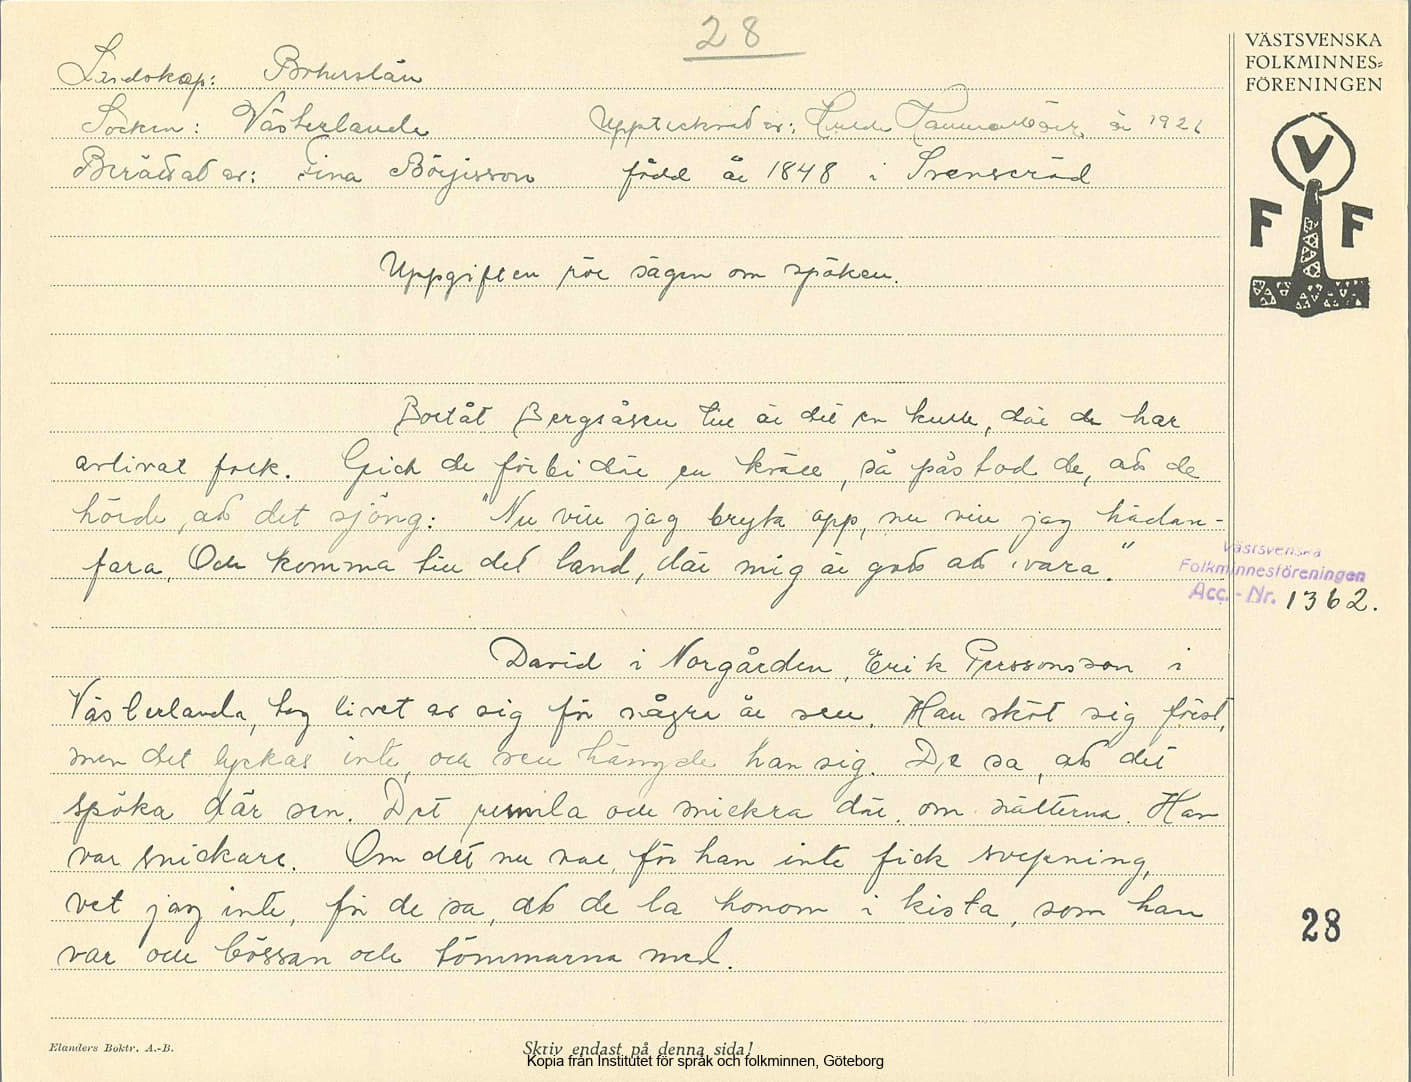 28
VÄSTSVENSKA
FOLKMINNES=
FÖRENINGEN
Landskap: Bohuslän
Socken: Västerlanda Upptecknat av: Hulda Hammarbäck år 1926
Berättat av: Tina Börjisson född år 1848 i Svenseröd
V
F F
Uppgiften rör sägen om spöken.
Bortåt Bergsåsen till är det en kulle, där de har
avlivat folk. Gick de förbi där en kväll, så påstod de, att de
hörde, att det sjöng: "Nu vill jag bryta opp, nu vill jag hädan-
fara, Och komma till det land, där mig är gott att vara."
Västsvenska
Folkminnesföreningen
Acc.-Nr. 1362.
David i Norgården, Erik Perssonsson i
Västerlanda, tog livet av sig för några år sen. Han sköt sig först,
men det lyckas inte, och sen hängde han sig. De sa, att det
spöka där sen. Det rumla och snickra där om nätterna. Han
var snickare. Om det nu var, för han inte fick svepning,
vet jag inte, för de sa, att de la honom i kista, som han
var och bössan och tömmarna med.
28
Elanders Boktr. A.-B.
Skriv endast på denna sida!
Kopia från Institutet för språk och folkminnen, Göteborg